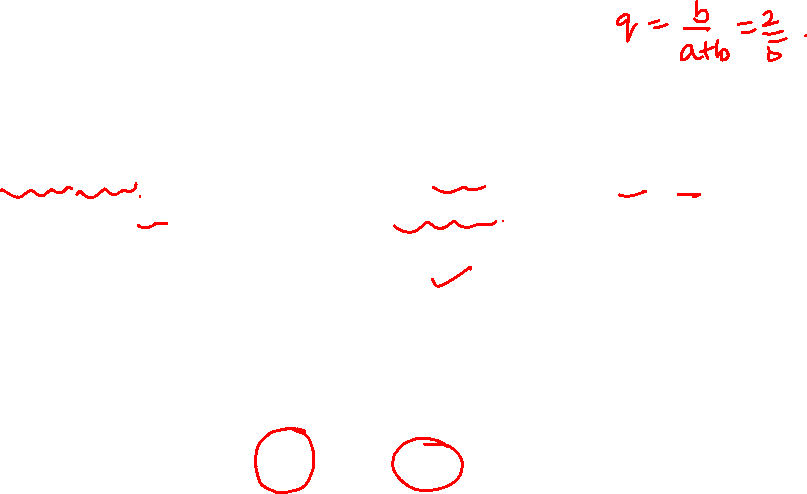 q = b/(a+b) = 2/5.